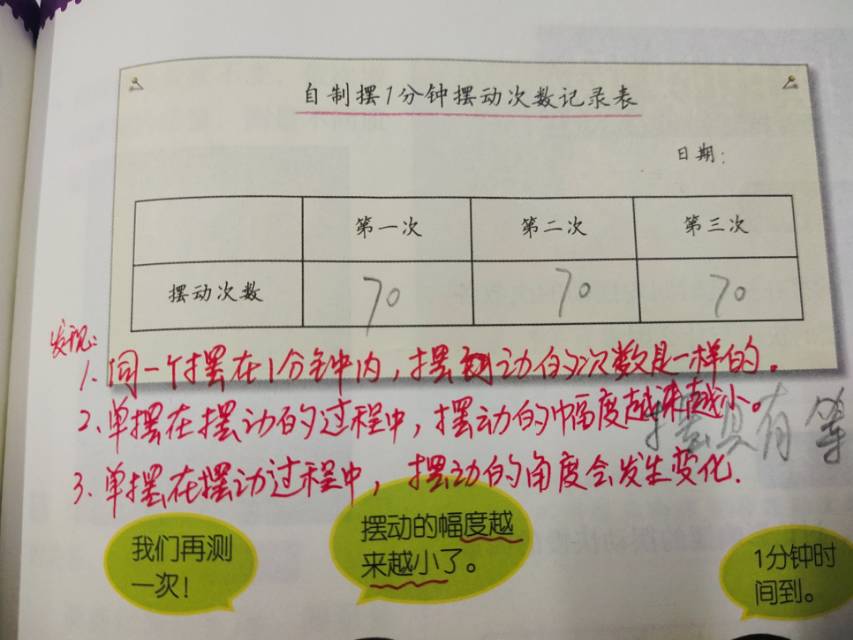 自制摆1分钟摆动次数记录表
日期:
第一次 第二次 第三次
摆动次数 70 70 70
发现:
1. 同一个摆在1分钟内,摆动的次数是一样的。
2、单摆在摆动的过程中,摆动的幅度越来越小。
摆具有等
3. 单摆在摆动过程中,摆动的角度会发生变化.
我们再测
一次!
摆动的幅度越
来越小了。
1分钟时
间到。